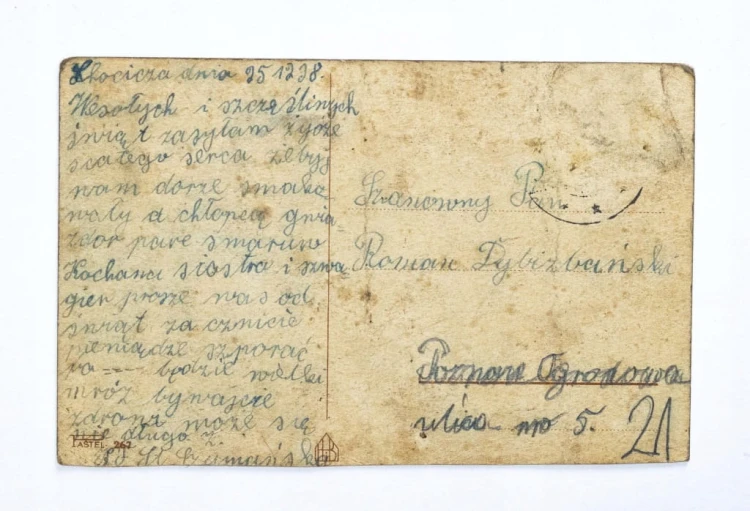 Chocicza dnia 25 12 38.
Wesołych i szczęśliwych
świąt zasyłam życze
scałego serca żebyj
wam dorze smako
wały a chłopcą gwia
zdor pare smarun
Kochana siostra i szwa
gier prosze was od
świąt za cznicie
pieniądze szporać
bo ---- będzie wielki
mróz bywajcze
zdrowi może się
długo ż.
Szymańska
ASTEL 262
Szanowny Pan
Roman Tybizbański
Poznań Ogrodowa
ulica nro 5.
21